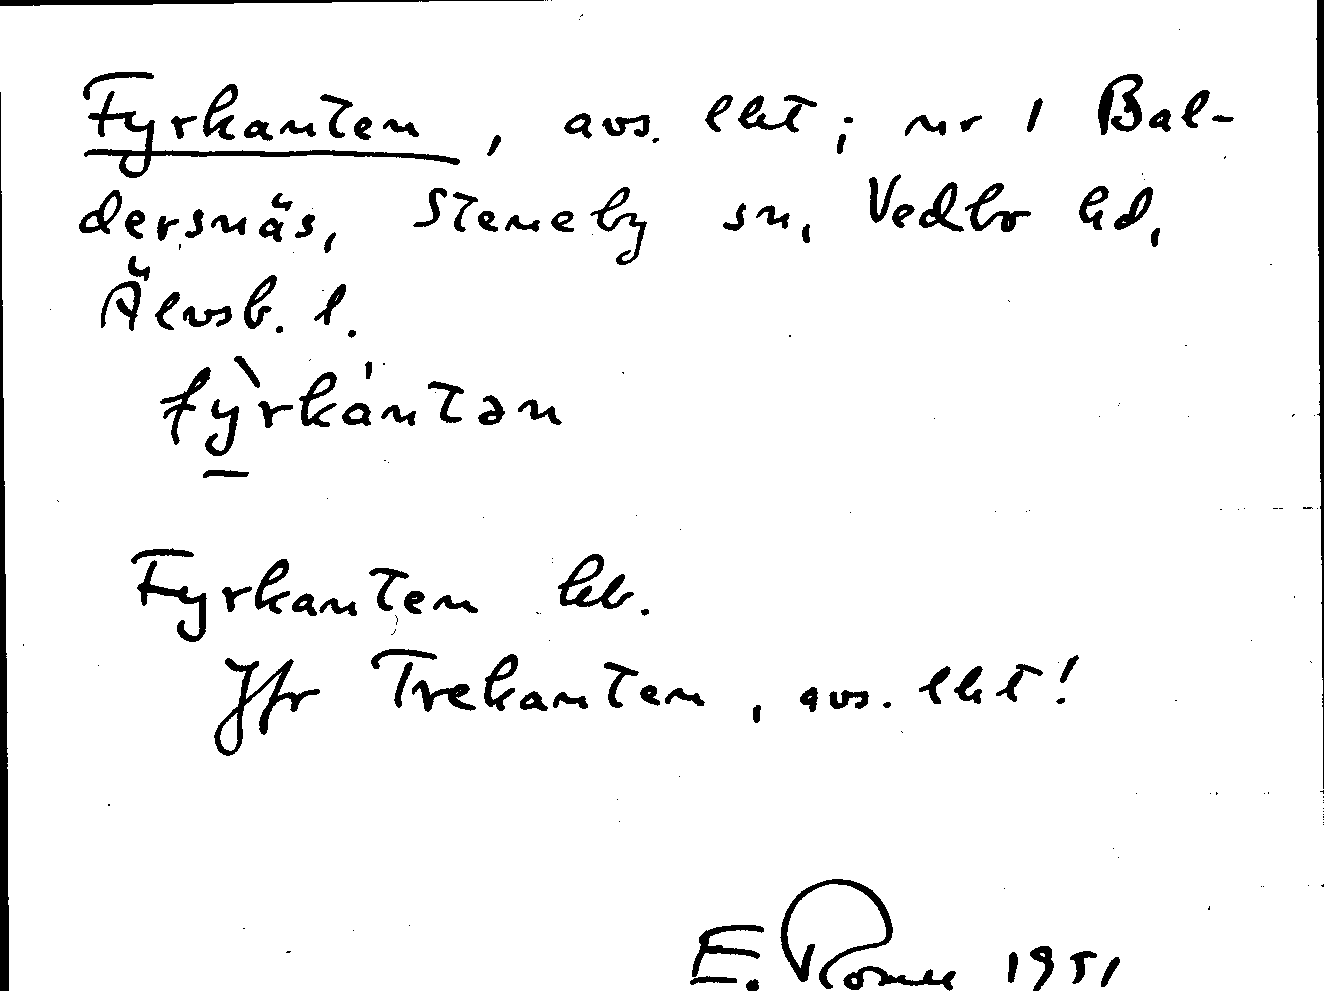 Fyrkanten, avs. lht; nr 1 Bal-
dersnäs, Steneby sn, Vedbo hd,
Älvsb. l.
fỳrkántən
Fyrkanten kb.
Jfr Trekanten, avs. lht!
E. 1951